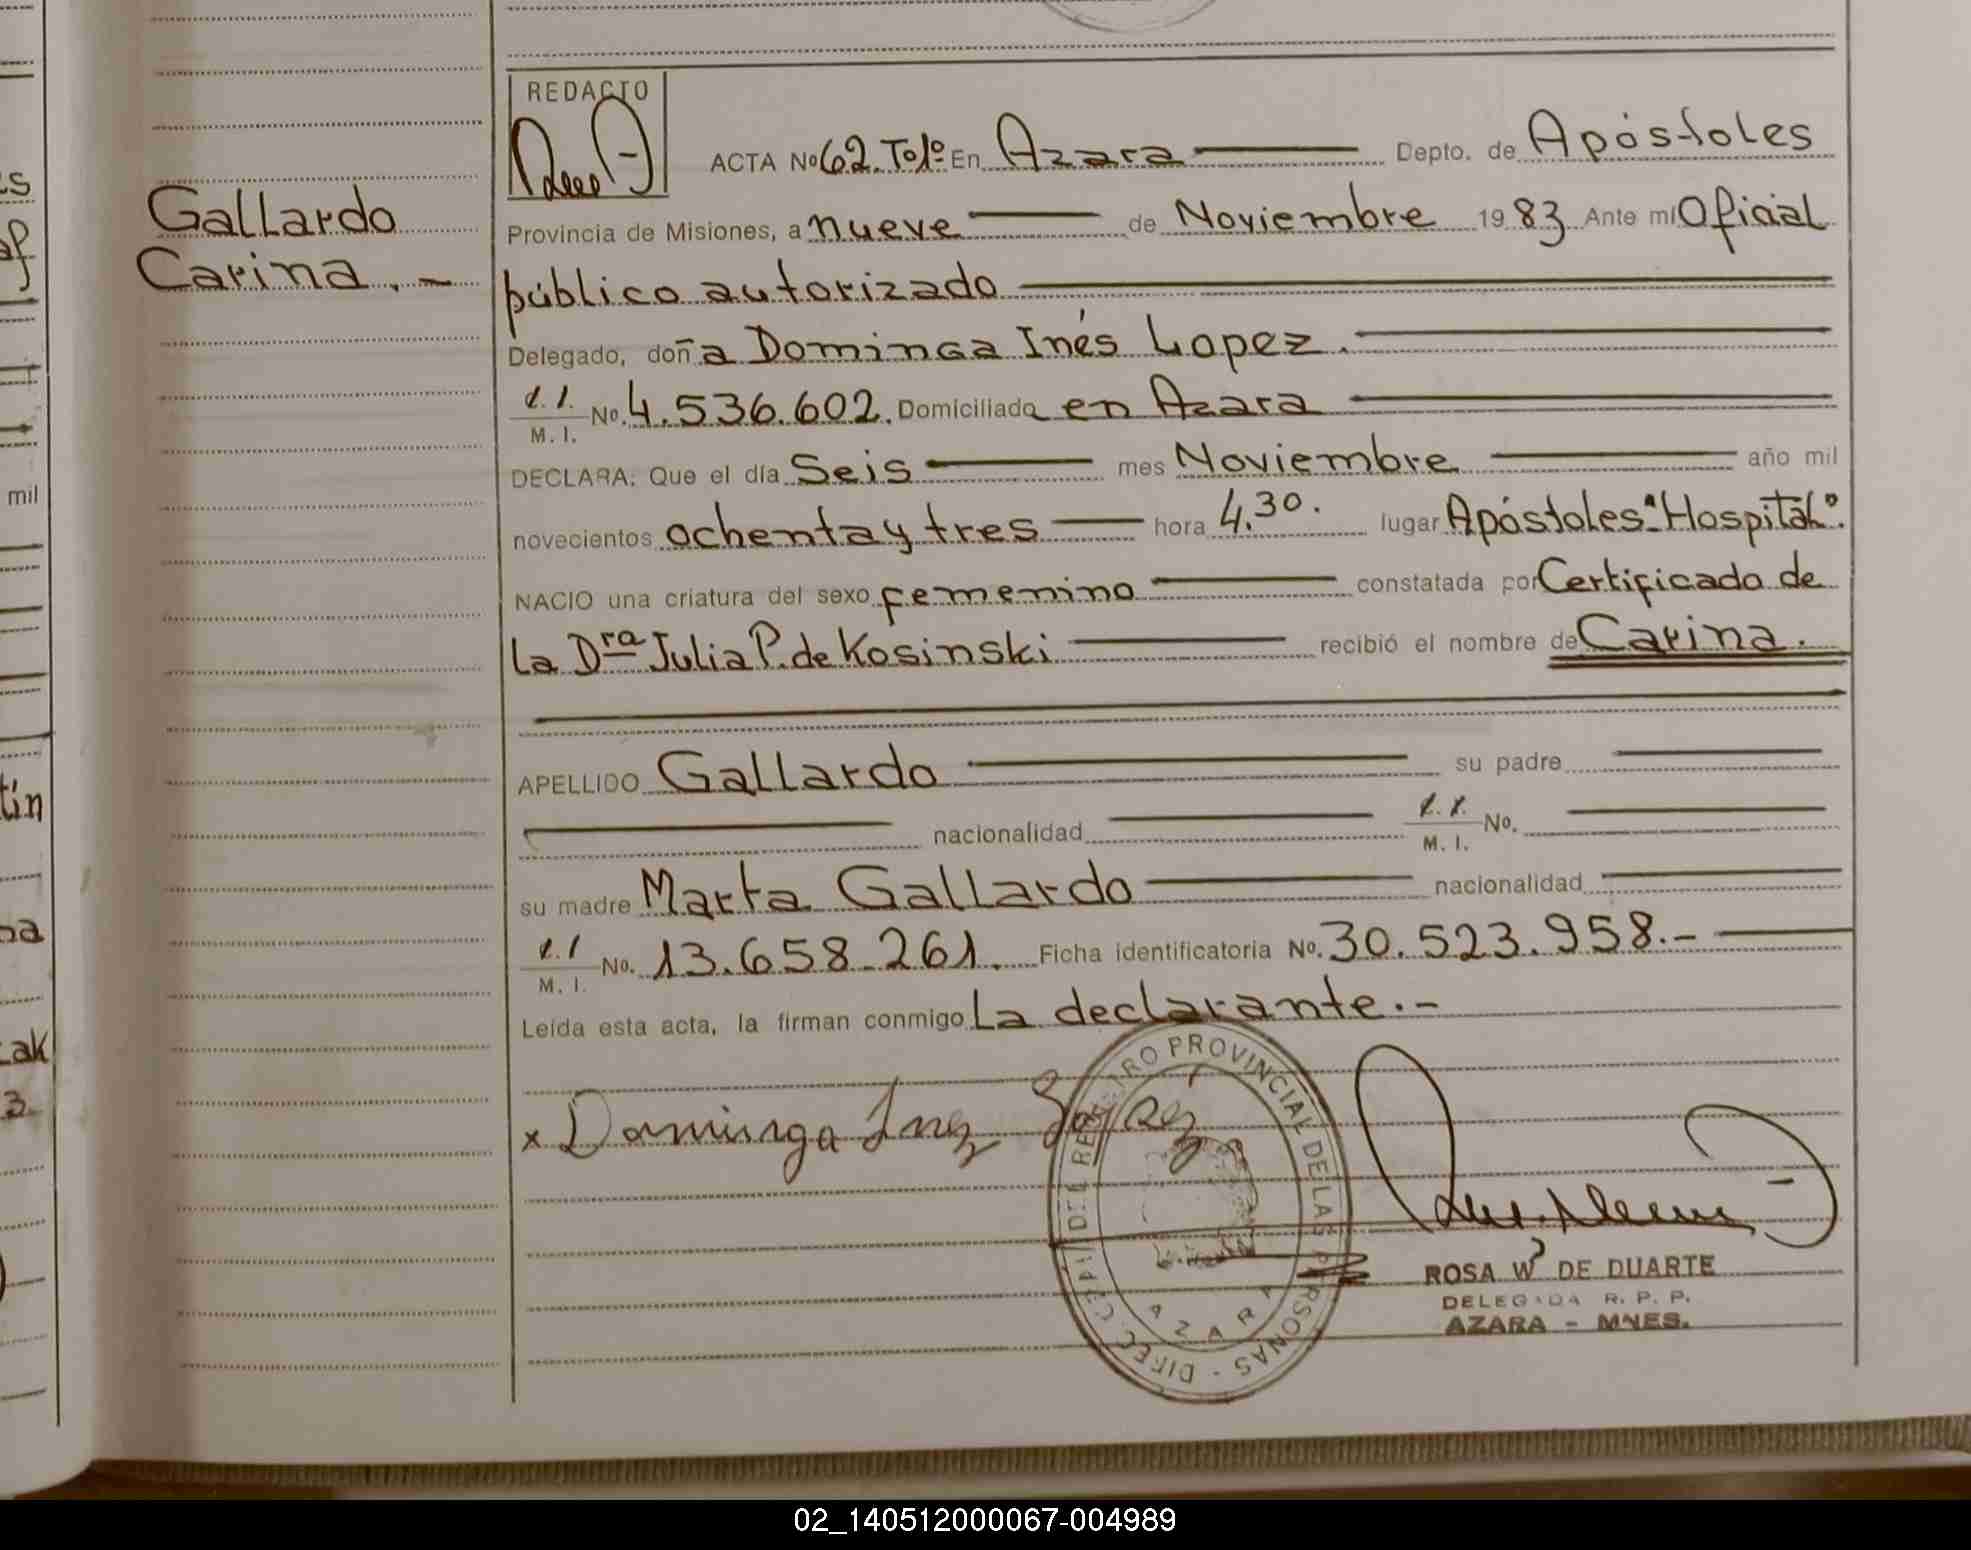 REDACTO
ACTA No 62. Tº1º En Azara Depto. de Apóstoles
Gallardo
Carina. -
Provincia de Misiones, a nueve de Noviembre 19 83 Ante mí Oficial
público autorizado
Delegado, doña Dominga Inés Lopez.
No. 4.536.602. Domiciliado en Azara
M. I.
DECLARA: Que el día Seis mes Noviembre año mil
novecientos ochenta y tres hora 4.30. lugar Apóstoles "Hospital".
NACIO una criatura del sexo femenino constatada por Certificado de
la Dra Julia P. de Kosinski recibió el nombre de Carina.
APELLIDO Gallardo su padre
nacionalidad No.
M. I.
su madre Marta Gallardo nacionalidad
No. 13.658.261. Ficha identificatoria No. 30.523.958.-
M. I.
Leída esta acta, la firman conmigo La declarante.-
x Dominga Inez
REGISTRO PROVINCIAL DE LAS PERSONAS - DIREC.
AZARA
ROSA W DE DUARTE
DELEGADA R. P. P.
AZARA - MNES.
mil
tín
na
zak
3
02_140512000067-004989